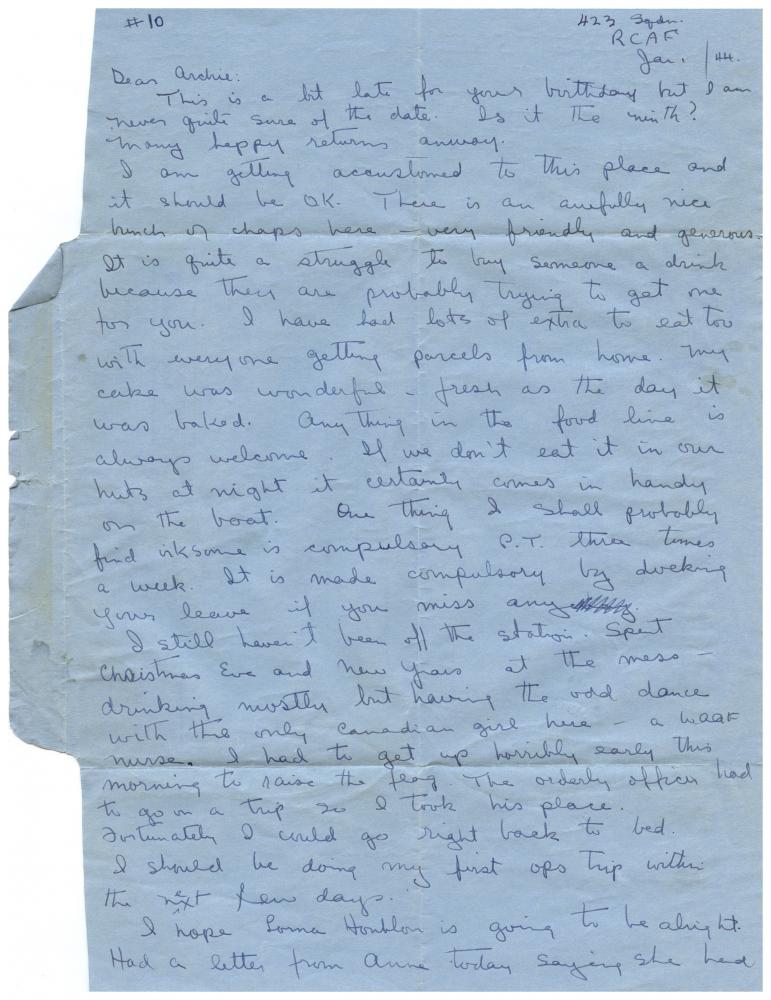 #10
423 Sqdn.
RCAF
Jan. 1/44.
Dear Archie:
This is a bit late for your birthday but I am
never quite sure of the date. Is it the ninth?
Many happy returns anyway.
I am getting accustomed to this place and
it should be OK. There is an awfully nice
bunch of chaps here – very friendly and generous.
It is quite a struggle to buy someone a drink
because they are probably trying to get one
for you. I have had lots of extra to eat too
with everyone getting parcels from home. My
cake was wonderful – fresh as the day it
was baked. Anything in the food line is
always welcome. If we don't eat it in our
huts at night it certainly comes in handy
on the boat. One thing I shall probably
find irksome is compulsory P.T. three times
a week. It is made compulsory by docking
your leave if you miss any.
I still haven't been off the station. Spent
Christmas Eve and New Years at the mess –
drinking mostly but having the odd dance
with the only Canadian girl here – a WAAF
nurse. I had to get up horribly early this
morning to raise the flag. The orderly officer had
to go on a trip so I took his place.
Fortunately I could go right back to bed.
I should be doing my first ops trip within
the next few days.
I hope Lorna is going to be alright.
Had a letter from Anne today saying she had